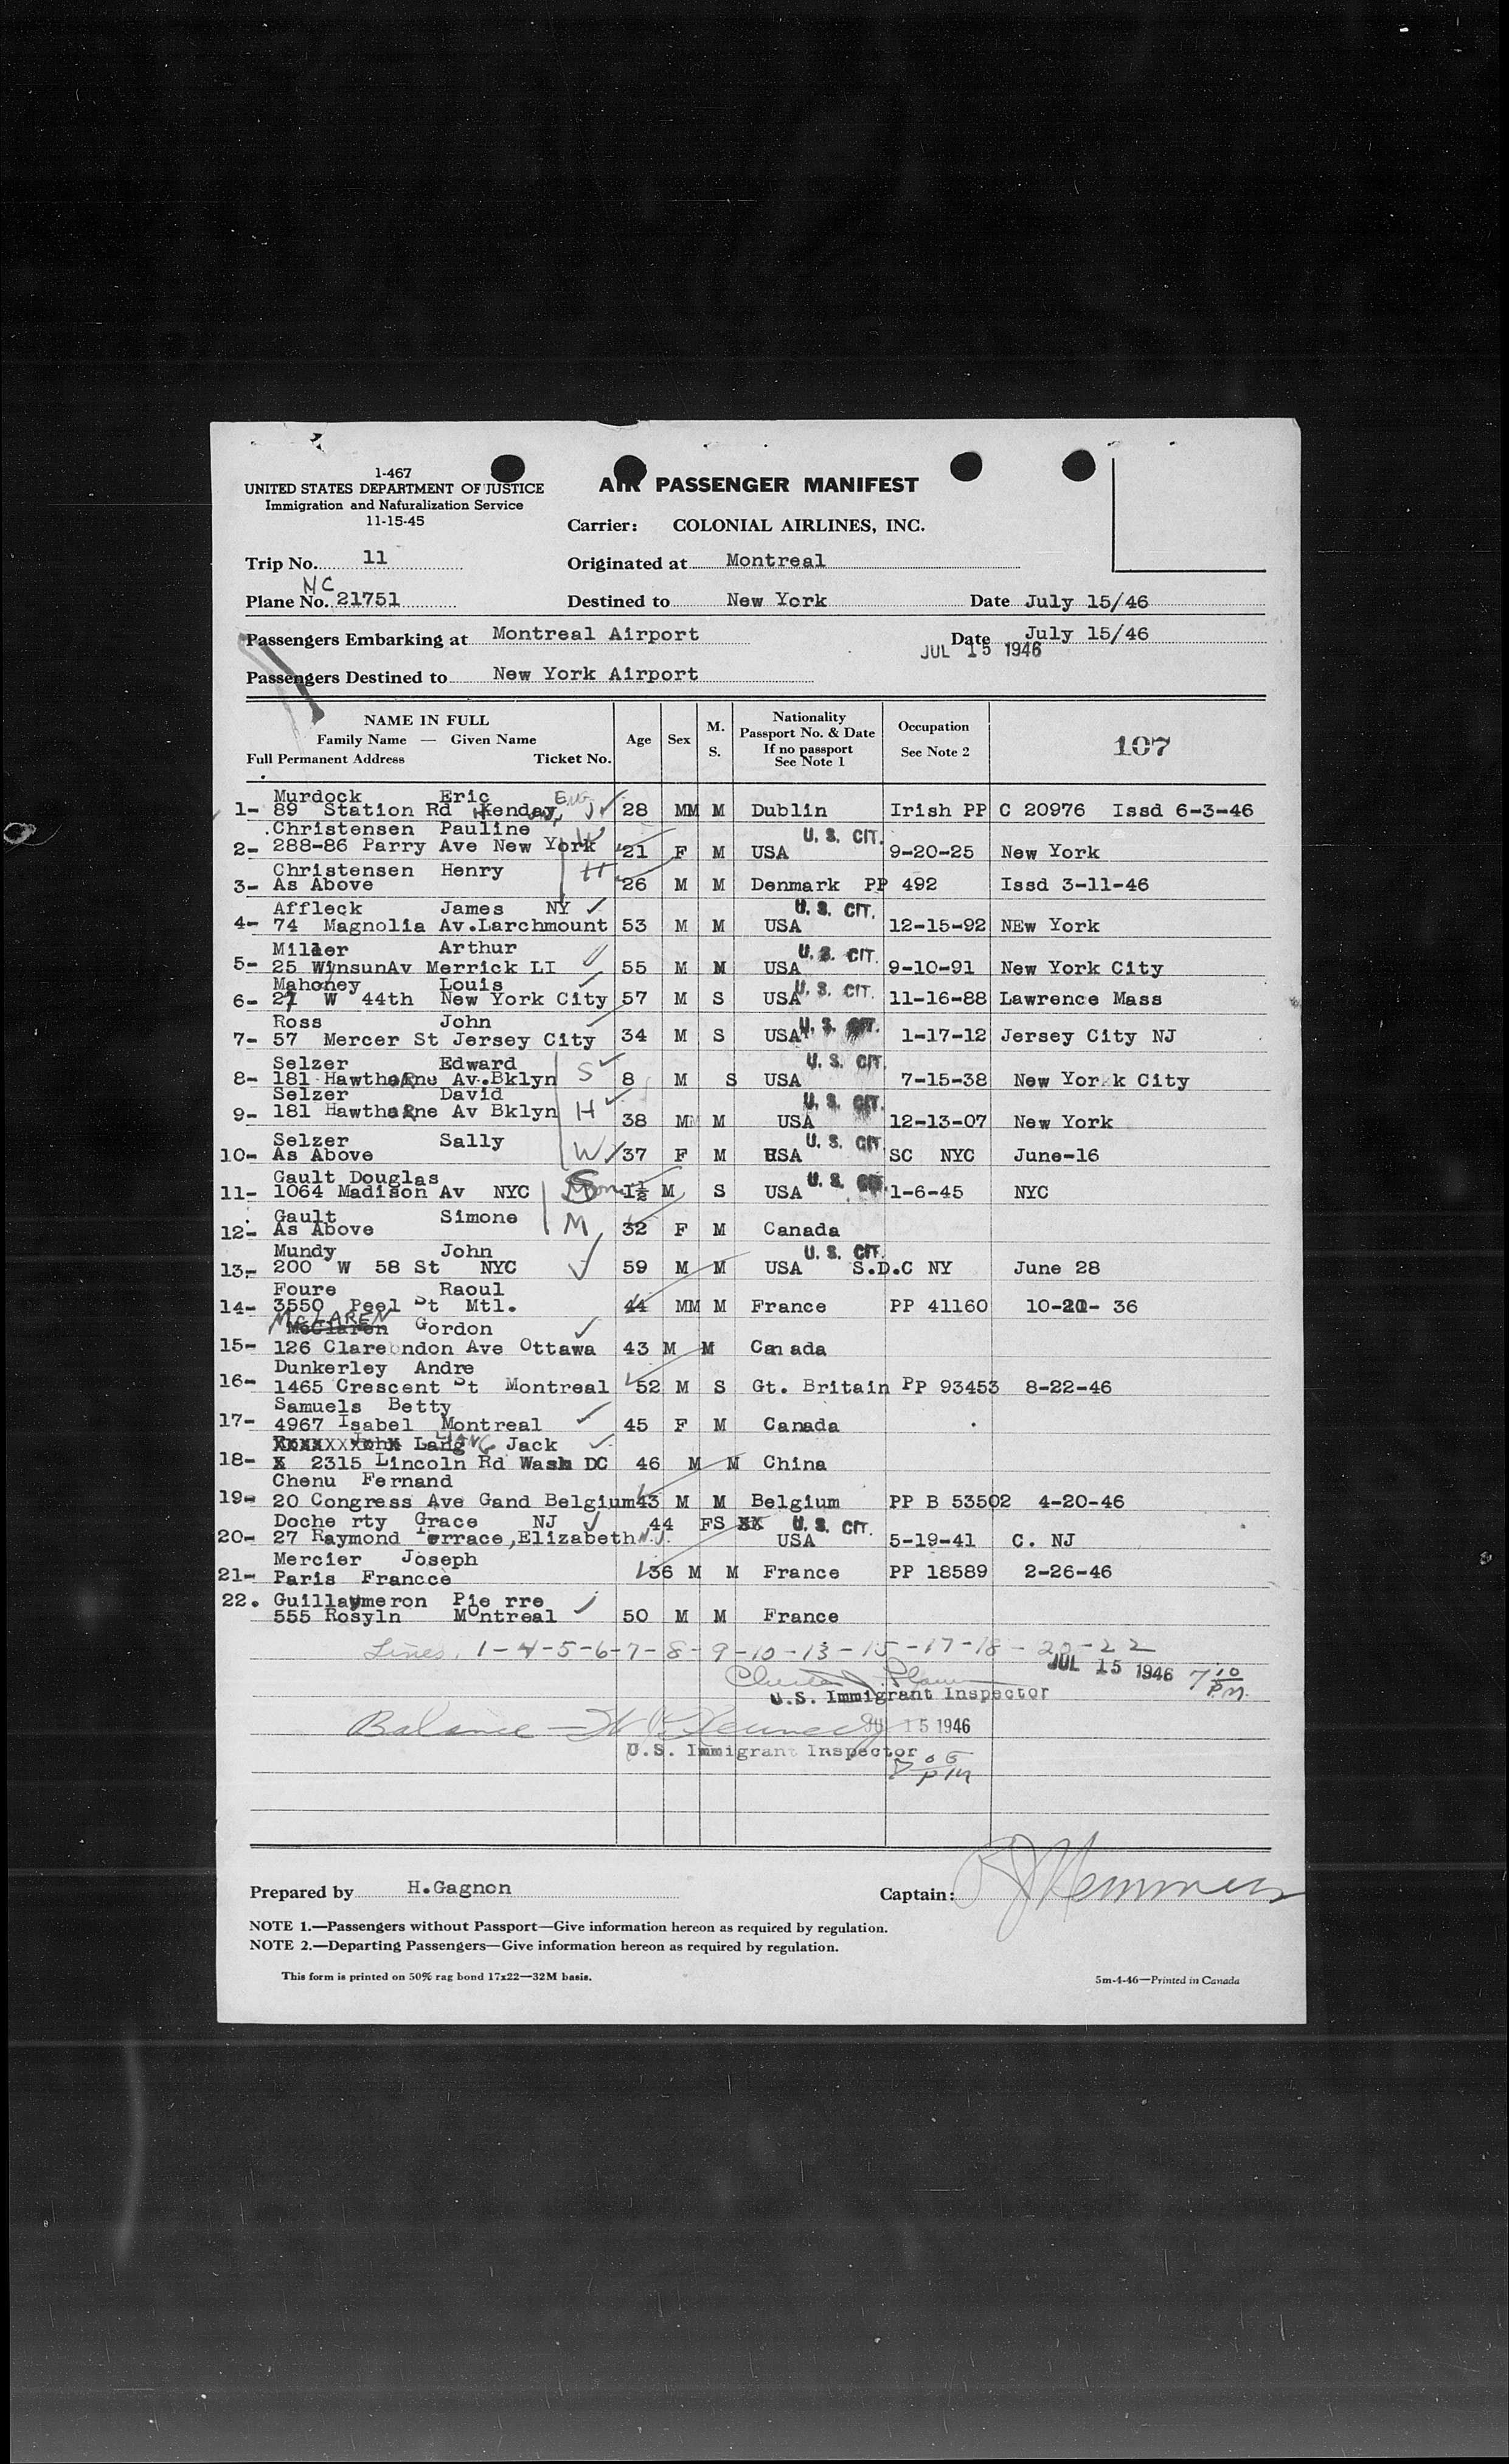 1-467
UNITED STATES DEPARTMENT OF JUSTICE
Immigration and Naturalization Service
11-15-45
AIR PASSENGER MANIFEST
Carrier: COLONIAL AIRLINES, INC.
Trip No. 11 Originated at Montreal
NC
Plane No. 21751 Destined to New York Date July 15/46
Passengers Embarking at Montreal Airport Date July 15/46
JUL 15 1946
Passengers Destined to New York Airport
NAME IN FULL
Family Name — Given Name
Full Permanent Address Ticket No.
Age Sex M. S.
Nationality
Passport No. & Date
If no passport
See Note 1
Occupation
See Note 2
107
Murdock Eric
1- 89 Station Rd 28 MM M Dublin Irish PP C 20976 Issd 6-3-46
Christensen Pauline W U. S. CIT.
2- 288-86 Parry Ave New York 21 F M USA 9-20-25 New York
Christensen Henry H
3- As Above 26 M M Denmark PP 492 Issd 3-11-46
Affleck James NY U. S. CIT.
4- 74 Magnolia Av.Larchmount 53 M M USA 12-15-92 NEw York
Miller Arthur U. S. CIT.
5- 25 WynsunAv Merrick LI 55 M M USA 9-10-91 New York City
Mahoney Louis U. S. CIT.
6- 27 W 44th New York City 57 M S USA 11-16-88 Lawrence Mass
Ross John U. S. CIT.
7- 57 Mercer St Jersey City 34 M S USA 1-17-12 Jersey City NJ
Selzer Edward S U. S. CIT.
8- 181 Hawthorne Av.Bklyn 8 M S USA 7-15-38 New York City
Selzer David H U. S. CIT.
9- 181 Hawthorne Av Bklyn 38 MM M USA 12-13-07 New York
Selzer Sally W U. S. CIT.
10- As Above 37 F M USA SC NYC June-16
Gault Douglas S U. S. CIT.
11- 1064 Madison Av NYC 1½ M S USA 1-6-45 NYC
Gault Simone M
12- As Above 32 F M Canada
Mundy John U. S. CIT.
13- 200 W 58 St NYC 59 M M USA S.D.C NY June 28
Foure Raoul
14- 3550 Peel St Mtl. 44 MM M France PP 41160 10-21- 36
McLAREN
McClaren Gordon
15- 126 Clarendon Ave Ottawa 43 M M Can ada
Dunkerley Andre
16- 1465 Crescent St Montreal 52 M S Gt. Britain PP 93453 8-22-46
Samuels Betty
17- 4967 Isabel Montreal 45 F M Canada
Lang LIANG Jack
18- X 2315 Lincoln Rd Wash DC 46 M M China
Chenu Fernand
19- 20 Congress Ave Gand Belgium 43 M M Belgium PP B 53502 4-20-46
Doche rty Grace NJ 44 FS XX U. S. CIT.
20- 27 Raymond Terrace,Elizabeth N.J. USA 5-19-41 C. NJ
Mercier Joseph
21- Paris Francce 36 M M France PP 18589 2-26-46
22. Guillaymeron Pie rre
555 Rosyln Montreal 50 M M France
Lines. 1-4-5-6-7-8-9-10-13-15-17-18-20-22
JUL 15 1946 7 10 P.M.
U.S. Immigrant Inspector
Balance — JUL 15 1946
U.S. Immigrant Inspector
8 05 PM
Prepared by H.Gagnon Captain:
NOTE 1.—Passengers without Passport—Give information hereon as required by regulation.
NOTE 2.—Departing Passengers—Give information hereon as required by regulation.
This form is printed on 50% rag bond 17x22—32M basis. 5m-4-46—Printed in Canada